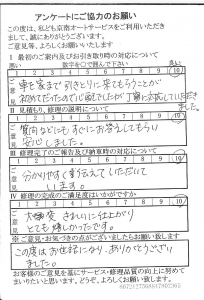 アンケートにご協力のお願い
この度は、私ども京南オートサービスをご利用いただき
まして、誠にありがとうございます。
ご意見等、よろしくお願いいたします
Ⅰ 最初のご案内及びお引き取り時の対応について
悪い 数字を○で囲んで下さい 良い
1 2 3 4 5 6 7 8 9 10
車を家まで引きとりに来てもらうことが
初めてだったので心配でしたが丁寧に対応していただき
ました。
Ⅱ 見積もり、修理の説明について
1 2 3 4 5 6 7 8 9 10
質問などにもすぐにお答えしてもらい
安心しました。
Ⅲ 修理完了のご報告及び納車時の対応について
1 2 3 4 5 6 7 8 9 10
分かりやすく教えていただいて
います。
Ⅳ 修理の完成のご満足度はいかがですか
1 2 3 4 5 6 7 8 9 10
大変 きれいに仕上がり
とても嬉しかったです。
※ご意見・お気づきの点がございましたらお願い致します
この度はお世話になり、ありがとうござい
ました。
お客様のご意見を基にサービス・修理品質の向上に努めて
まいりたいと思います。どうぞ、よろしくお願い致します。